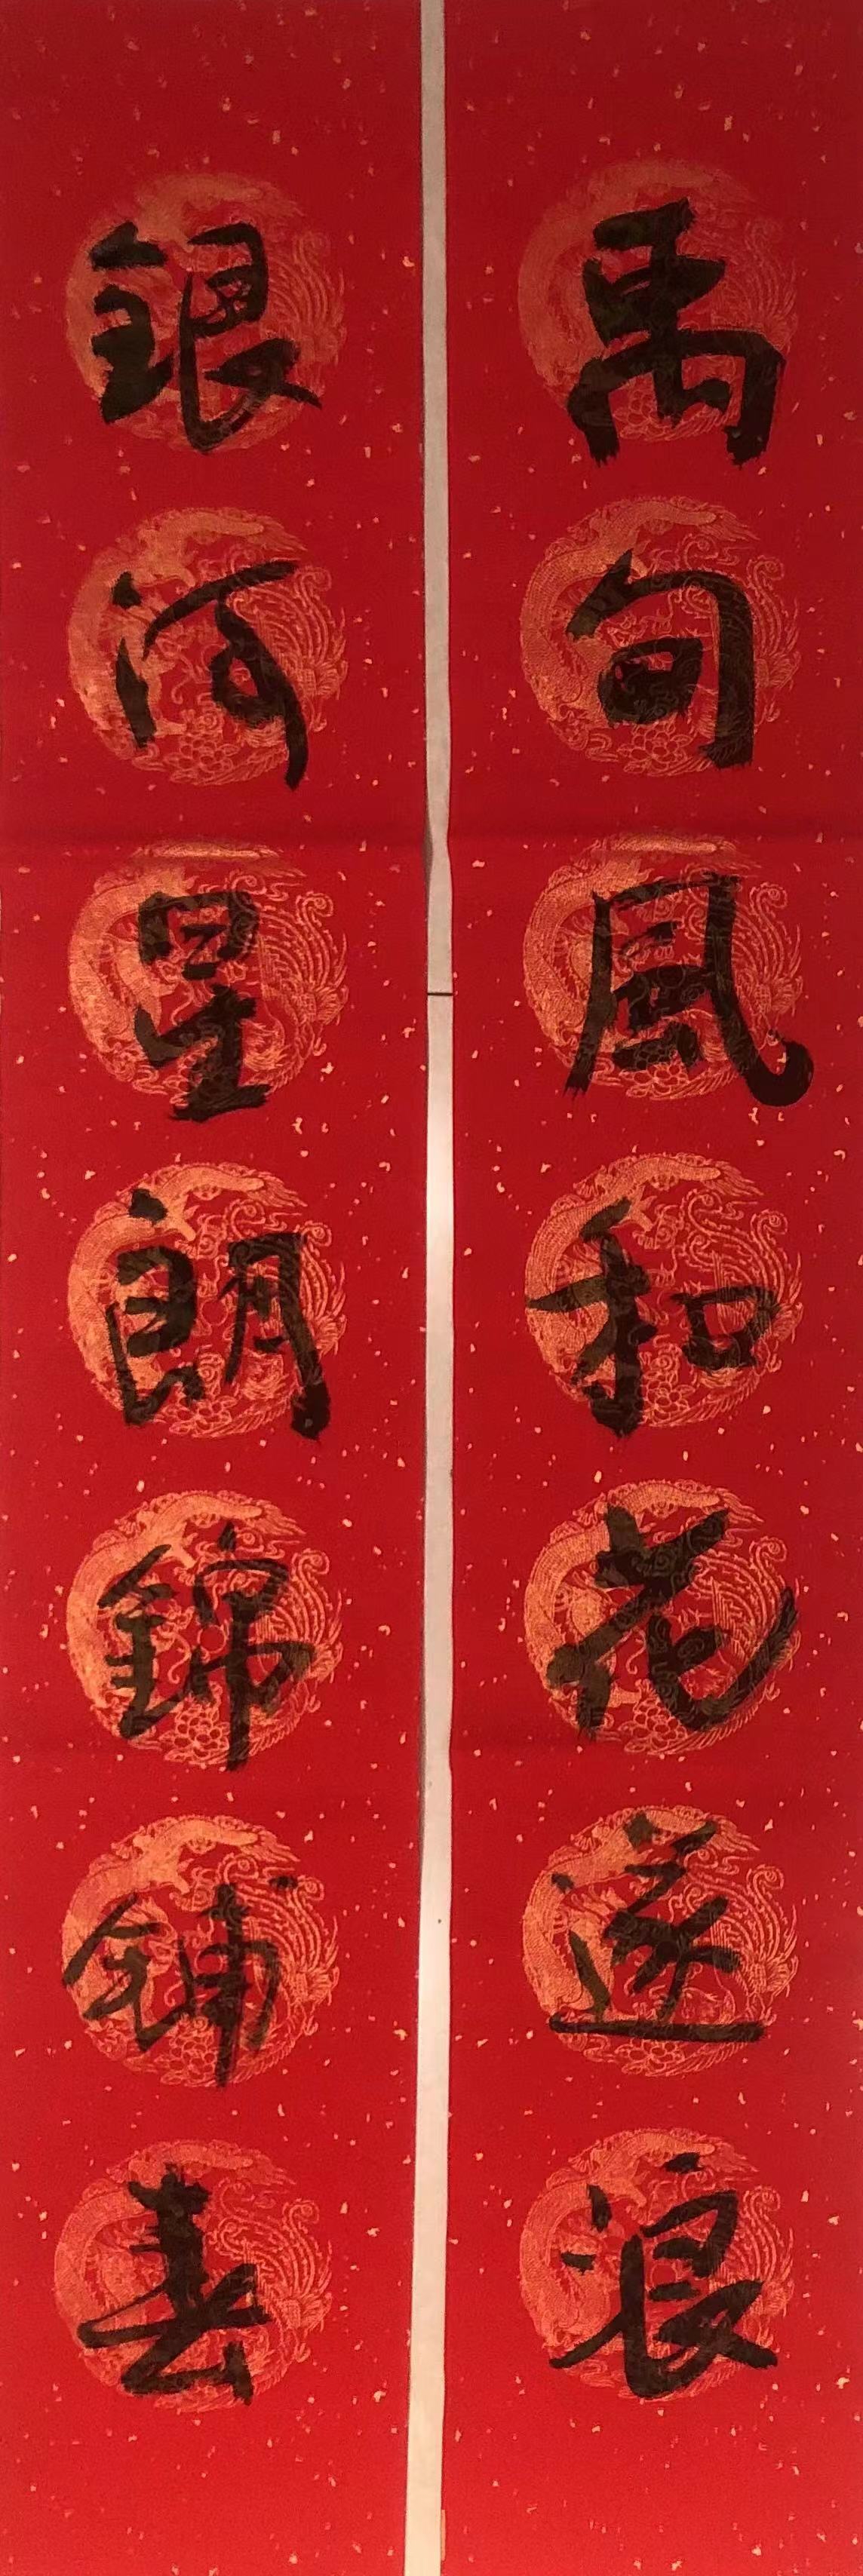 禹句風和花逐浪
銀河星朗錦鋪春